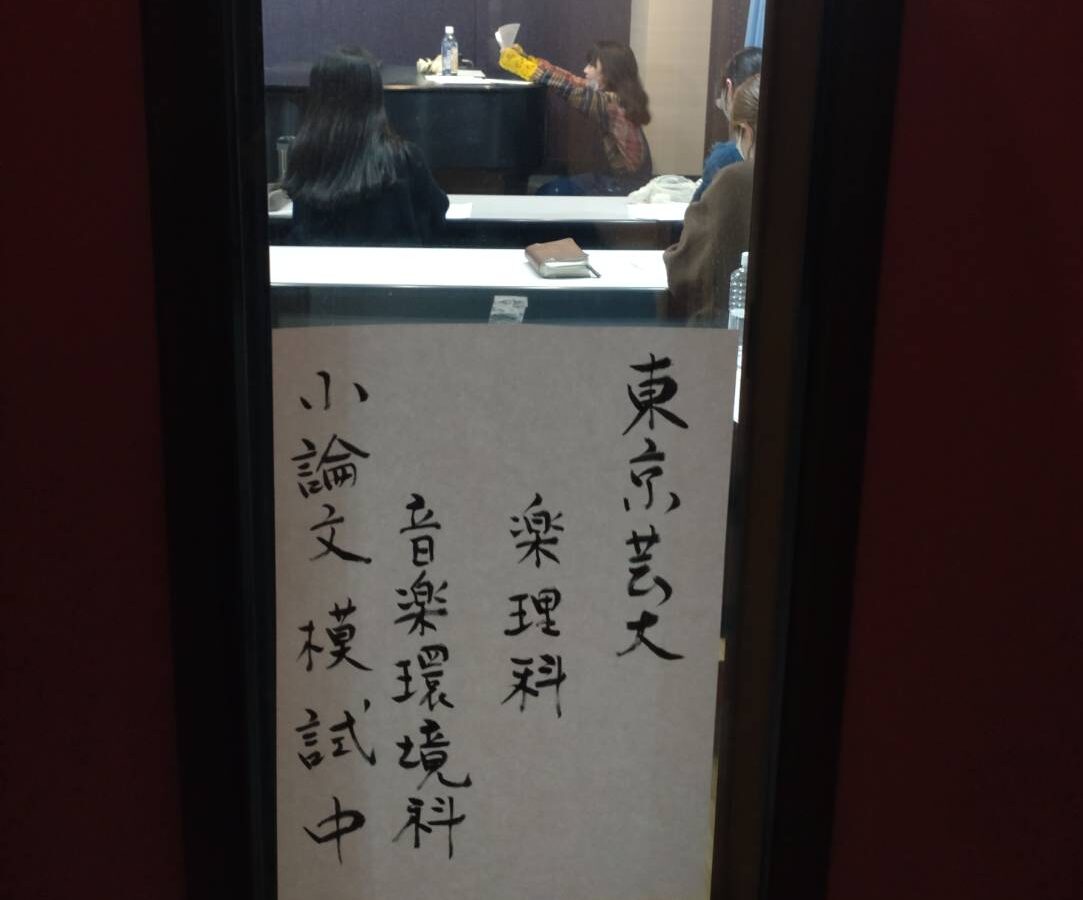 東京芸大
楽理科
音楽環境科
小論文 模試中